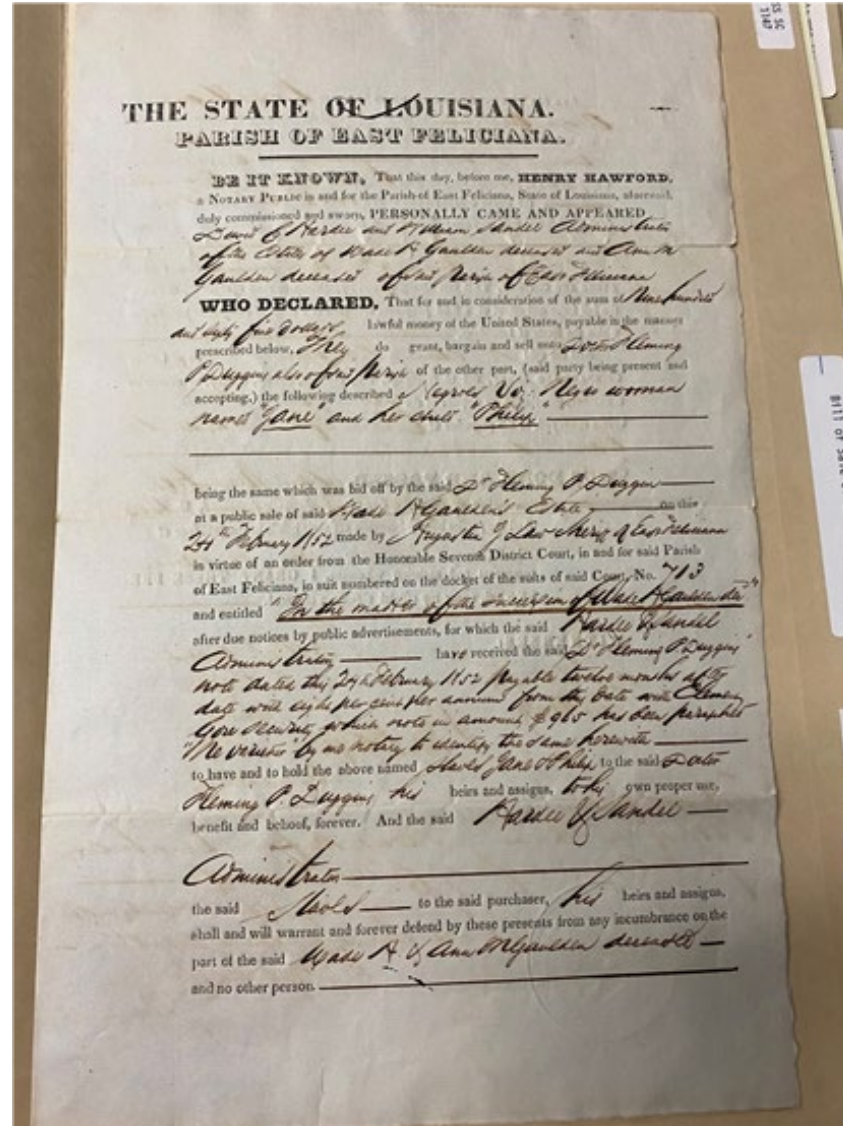 THE STATE OF LOUISIANA.
PARISH OF EAST FELICIANA.
BE IT KNOWN, That this day, before me, HENRY HAWFORD,
a NOTARY PUBLIC in and for the Parish of East Feliciana, State of Louisiana, aforesaid,
duly commissioned and sworn, PERSONALLY CAME AND APPEARED
Hardee and William Sandel Administrators
of the Estate of Wade H Gaulden deceased and Ann M
Gaulden deceased of said Parish of East Feliciana
WHO DECLARED, That for and in consideration of the sum of Nine hundred
and sixty five Dollars lawful money of the United States, payable in the manner
prescribed below, They do grant, bargain and sell unto Doctr Fleming
P. Duggins also of said Parish of the other part, (said party being present and
accepting,) the following described Negroes Viz. Negro woman
named "Jane" and her child "Philip"
being the same which was bid off by the said Dr Fleming P. Duggins
at a public sale of said Wade H Gaulden's Estate on this
24th February 1852 made by Augustus J Law Sheriff of East Feliciana
in virtue of an order from the Honorable Seventh District Court, in and for said Parish
of East Feliciana, in suit numbered on the docket of the suits of said Court, No. 713
and entitled "In the matter of the succession of Wade H Gaulden decd"
after due notices by public advertisements, for which the said Hardee & Sandel
Administrators have received the said Dr Fleming P. Duggins'
note dated this 24th February 1852 payable twelve months after
date with eight per cent per annum from the date with
Gore security which note in amount $965 has been paraphed
"Ne varietur" by me notary to identify the same herewith
to have and to hold the above named slaves Jane & Philip to the said Doctor
Fleming P. Duggins his heirs and assigns, to his own proper use,
benefit and behoof, forever. And the said Hardee & Sandel
Administrators
the said slaves to the said purchaser, his heirs and assigns,
shall and will warrant and forever defend by these presents from any incumbrance on the
part of the said Wade H & Ann M Gaulden deceased
and no other person.
Bill of Sale